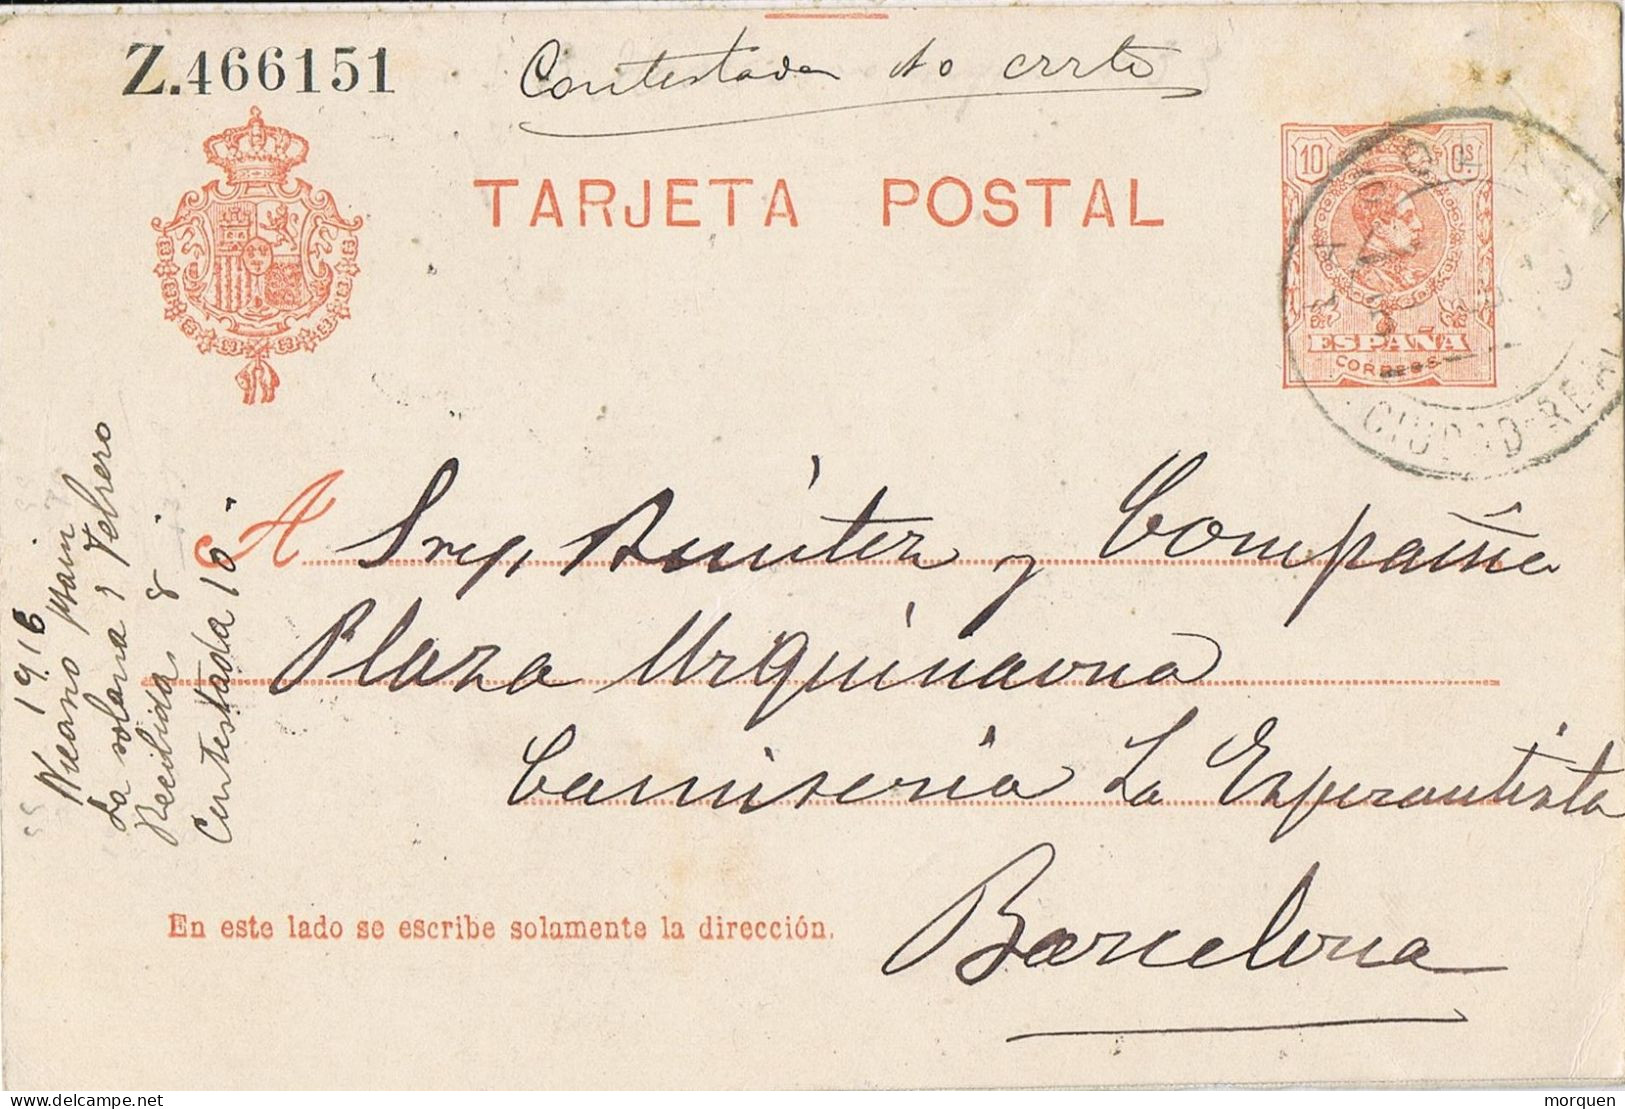 Z.466151
Contestada 10 crrte
TARJETA POSTAL
10 Cs
ESPAÑA
CORREOS
CIUDAD-REAL
A Sres, Benitez y Compañia
Plaza Urquinaona
Camiseria La Esperantista
Barcelona
En este lado se escribe solamente la dirección.
1916
La solana 2 Febrero
Recibida, 8
Contestada 10
morquen